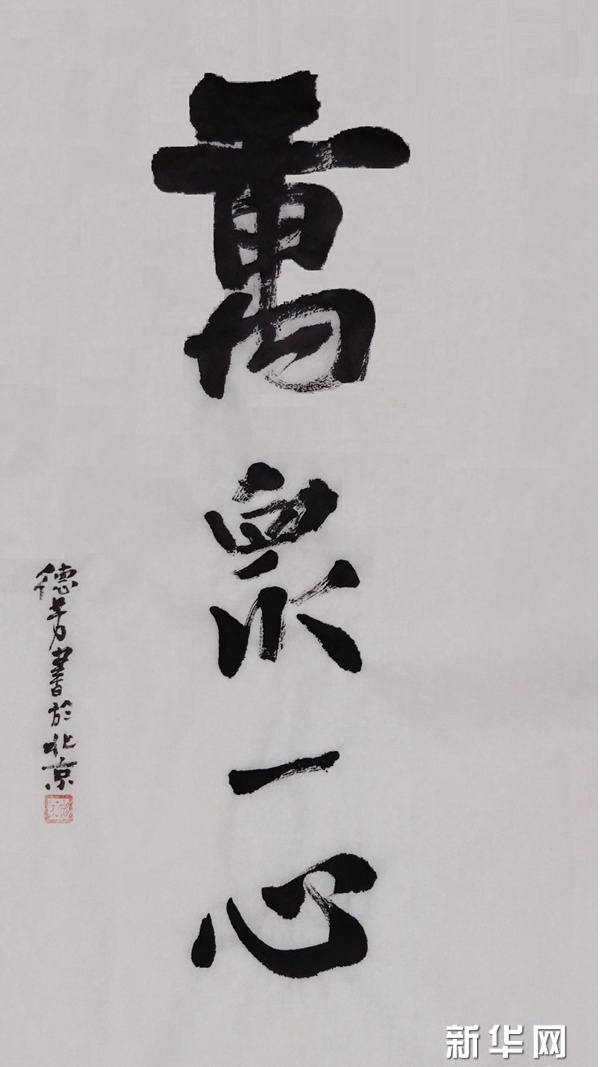 萬眾一心
德芳書於北京
新华网